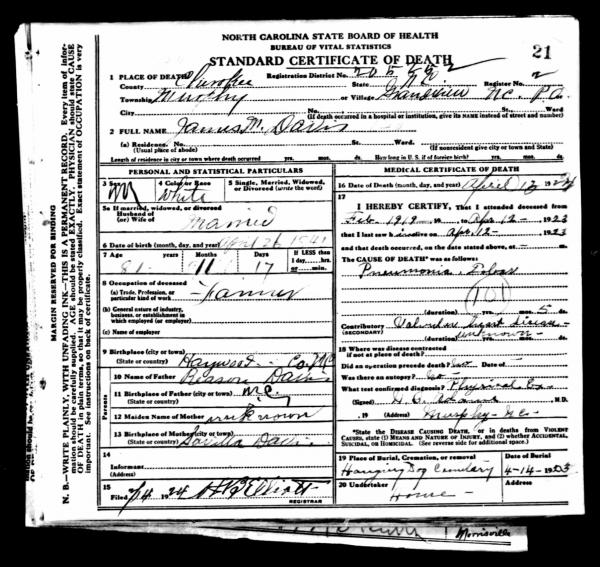 NORTH CAROLINA STATE BOARD OF HEALTH
BUREAU OF VITAL STATISTICS
STANDARD CERTIFICATE OF DEATH
21
1 PLACE OF DEATH Cherokee Registration District No. 2
County State N.C. Register No. 2
Township Murphy or Village Grandview N.C.
City No. St. Ward
(If death occurred in a hospital or institution, give its name instead of street and number)
2 FULL NAME James M. Davis
(a) Residence. No. St. Ward.
(Usual place of abode) (If nonresident give city or town and State)
Length of residence in city or town where death occurred yrs. mos. ds. How long in U. S. if of foreign birth? yrs. mos. ds.
PERSONAL AND STATISTICAL PARTICULARS
3 Sex M 4 Color or Race White 5 Single, Married, Widowed, or Divorced (write the word)
5a If married, widowed, or divorced
Husband of
(or) Wife of Married
6 Date of birth (month, day, and year) April 26 1841
7 Age years months Days IF LESS than
81 11 17 1 day, hrs.
or min.
8 Occupation of deceased
(a) Trade, Profession, or
particular kind of work Farmer
(b) General nature of industry,
business, or establishment in
which employed (or employer)
(c) Name of employer
9 Birthplace (city or town)
(State or country) Haywood Co. N.C.
Parents
10 Name of Father Reason Davis
11 Birthplace of Father (city or town)
(State or country) N.C.
12 Maiden Name of Mother unknown
13 Birthplace of Mother (city or town)
(State or country) Davis
14
Informant
(Address)
15
Filed 7/4 1924
REGISTRAR
MEDICAL CERTIFICATE OF DEATH
16 Date of Death (month, day, and year) April 19
17
I HEREBY CERTIFY, That I attended deceased from
Feb. 1919 to Apr. 12 1923
that I last saw h alive on Apr. 12 1923
and that death occurred, on the date stated above, at m
The CAUSE OF DEATH* was as follows:
Pneumonia, Lobar
101
(duration) yrs. mos. 5 ds.
Contributory Valvular heart disease
(SECONDARY) (duration) unknown
18 Where was disease contracted
if not at place of death?
Did an operation precede death? No Date of
Was there an autopsy?
What test confirmed diagnosis? Physical Ex
(Signed) M.D.
, 19 (Address) Murphy N.C.
*State the DISEASE CAUSING DEATH, or in deaths from VIOLENT
CAUSES, state (1) MEANS AND NATURE OF INJURY, and (2) whether ACCIDENTAL,
SUICIDAL, or HOMICIDAL. (See reverse side for additional space).
19 Place of Burial, Cremation, or removal Date of Burial
Hanging Dog Cemetery 4-14-1923
20 Undertaker Address
Home
MARGIN RESERVED FOR BINDING
N. B.—WRITE PLAINLY, WITH UNFADING INK—THIS IS A PERMANENT RECORD. Every item of information should be carefully supplied. AGE should be stated EXACTLY. PHYSICIAN should state CAUSE OF DEATH in plain terms, so that it may be properly classified. Exact statement of OCCUPATION is very important. See instructions on back of certificate.
Morrisville